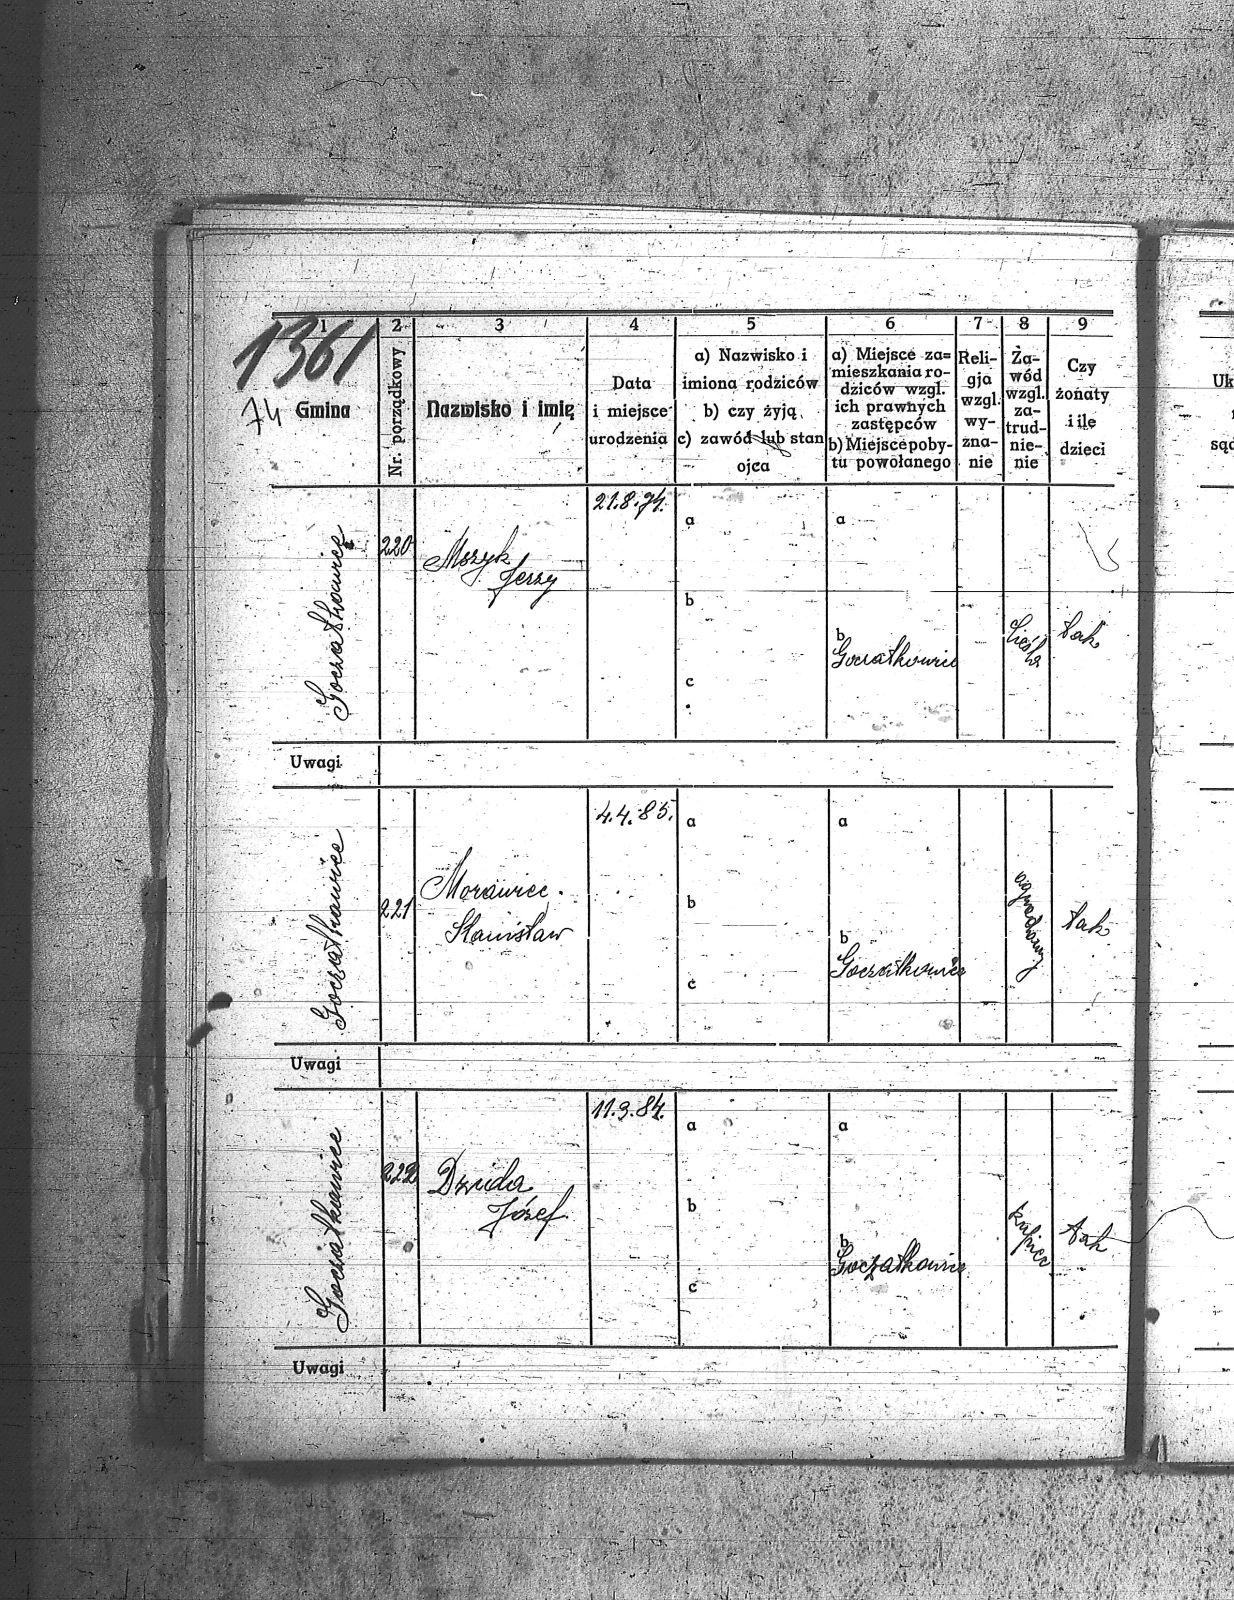 1361
74
1 2 3 4 5 6 7 8 9
Gmina
Nr. porządkowy
Nazwisko i imię
Data
i miejsce
urodzenia
a) Nazwisko i
imiona rodziców
b) czy żyją
c) zawód lub stan
ojca
a) Miejsce za=
mieszkania ro-
dziców wzgl.
ich prawnych
zastępców
b) Miejsce poby-
tu powołanego
Reli-
gja
wzgl.
wy-
zna-
nie
Za-
wód
wzgl.
za-
trud-
nie-
nie
Czy
żonaty
i ile
dzieci
Goczałkowice
220
Mszyk
Jerzy
21.8.74.
a
b
c
a
b
Goczałkowice
Cieśla
tak
Uwagi
Goczałkowice
221
Morawiec
Stanisław
4.4.85.
a
b
c
a
b
Goczałkowice
tak
Uwagi
Goczałkowice
222
Dzida
Józef
11.3.84.
a
b
c
a
b
Goczałkowice
kupiec
tak
Uwagi
Uk
sąd